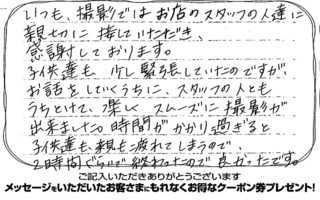 いつも、撮影ではお店のスタッフの人達に
親切に接していただき、
感謝しております。
子供達も、少し緊張していたのですが、
お話をしていくうちに、スタッフの人とも
うちとけて、楽しくスムーズに撮影が
出来ました。時間がかかり過ぎると
子供達も、親も疲れてしまうので、
2時間ぐらいで終わったので良かったです。
ご記入いただきありがとうございます
メッセージをいただいたお客さまにもれなくお得なクーポン券プレゼント!